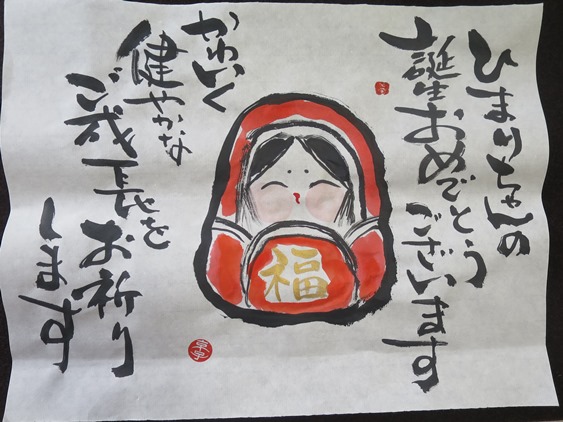 ひまりちゃんの
誕生おめでとう
ございます
福
かわいく
健やかな
ご成長を
お祈り
します